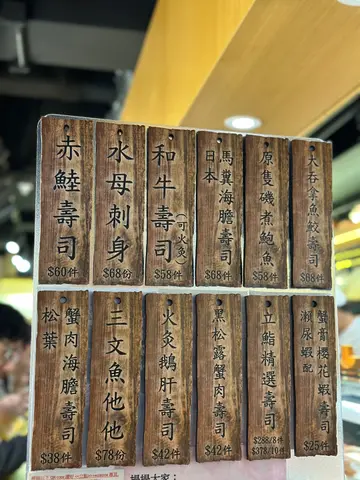 赤鯥壽司
$60件
水母刺身
$68份
和牛壽司
(可火炙)
$58件
日本
馬糞海膽壽司
$68件
原隻磯煮鮑魚
$58件
大吞拿魚鮫壽司
$68件
松葉
蟹肉海膽壽司
$38件
三文魚他他
$78份
火炙鵝肝壽司
$42件
黑松露蟹肉壽司
$42件
立鮨精選壽司
$288/8件
$378/10件
瀨尿蝦配
蟹膏櫻花蝦壽司
$25件